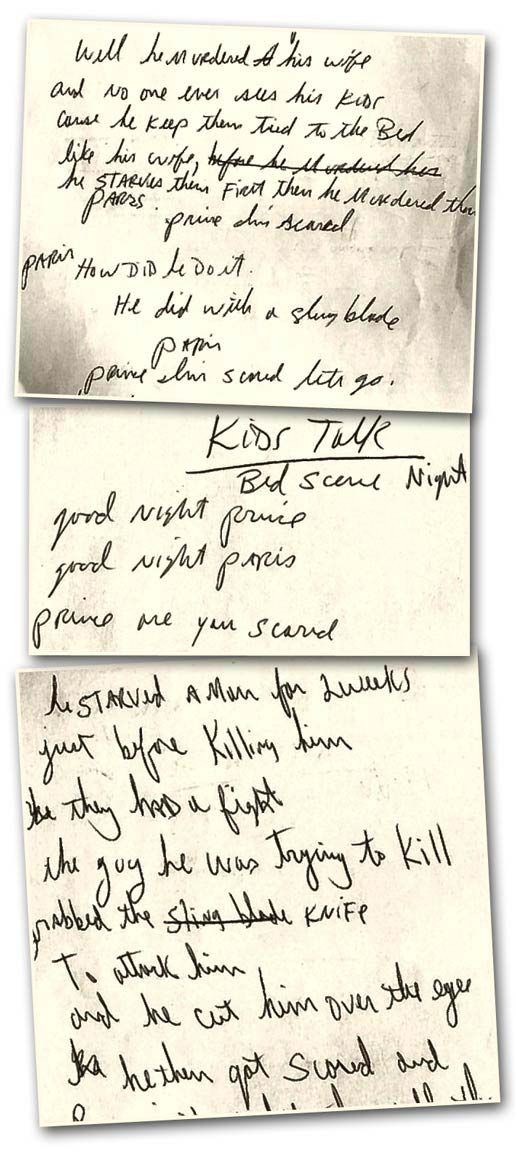 Well he murdered his wife
and no one ever sees his kids
cause he keep them tied to the Bed
like his wife, before he Murdered her
he STARVES them First then he Murdered them
PARIS
prince im scared
PARIS How DID he Do it.
He did with a sling blade
PARIS
prince im scared lets go.
Kids Talk
Bed Scene Night
good night prince
good night PARIS
prince are you scared
he STARVED A Man for 2 weeks
just before Killing him
they had a fight
the guy he was Trying to Kill
grabbed the sling blade KNIFE
To attack him
and he cut him over the eye
he then got scared and